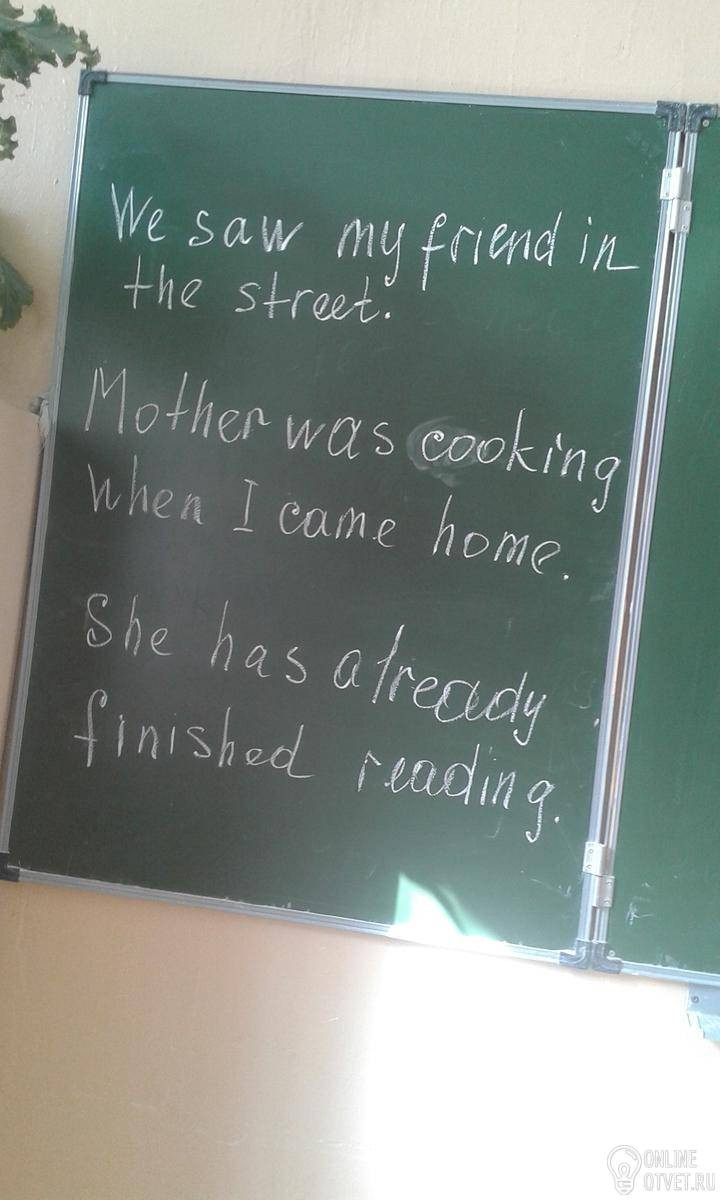 We saw my friend in
the street.
Mother was cooking
when I came home.
She has already
finished reading.
ONLINE
OTVET.RU